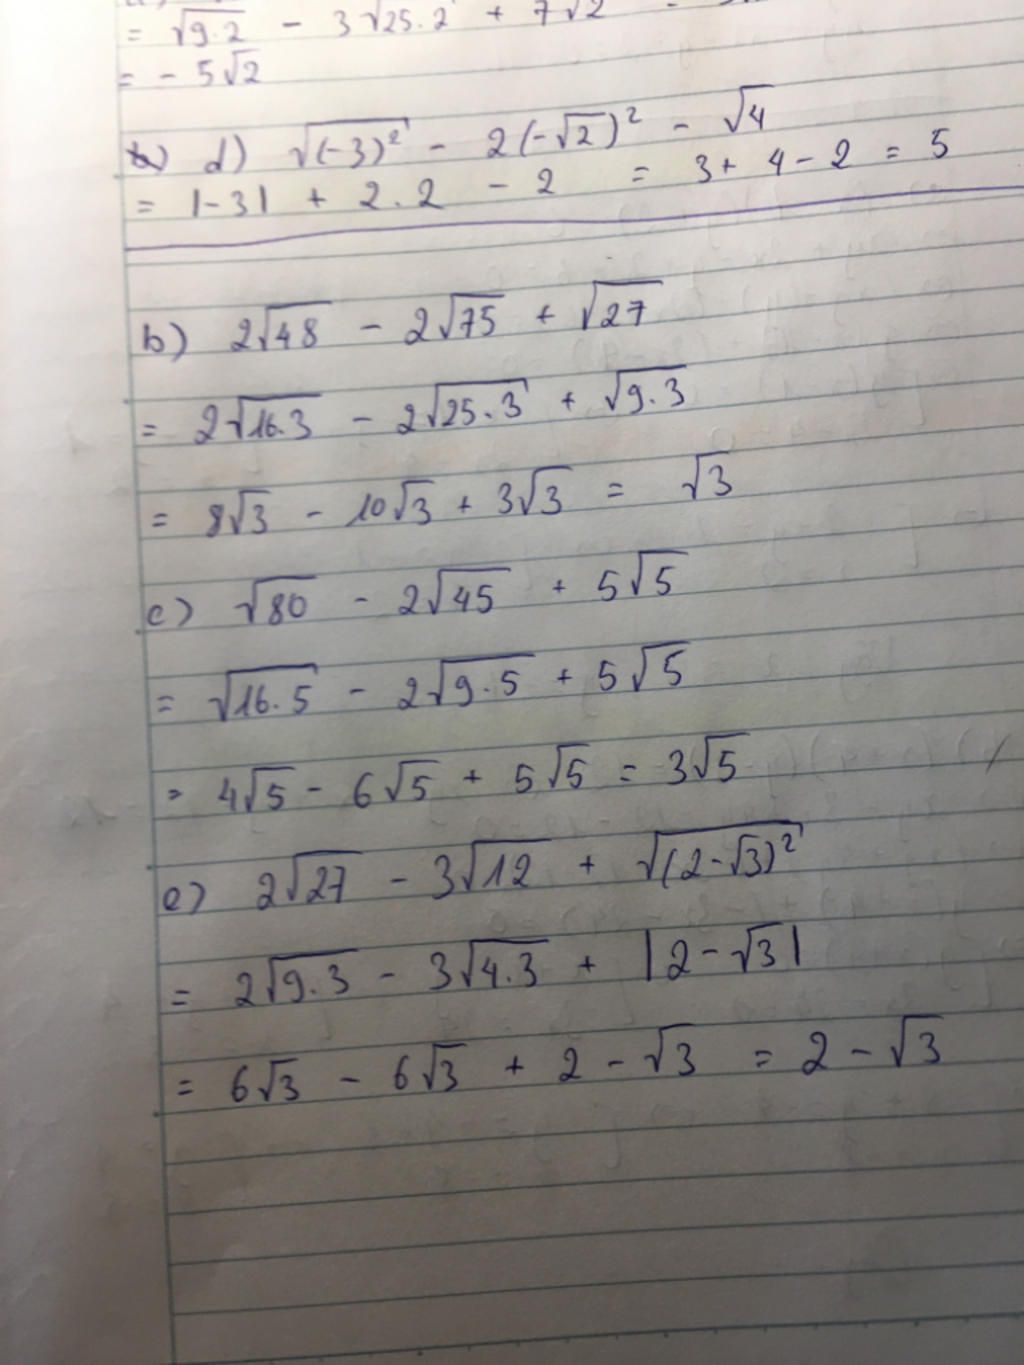 = √9.2 - 3√25.2 + 7√2
= - 5√2
d) √(-3)² - 2(-√2)² - √4
= |-3| + 2.2 - 2 = 3+ 4 - 2 = 5
b) 2√48 - 2√75 + √27
= 2√16.3 - 2√25.3 + √9.3
= 8√3 - 10√3 + 3√3 = √3
c) √80 - 2√45 + 5√5
= √16.5 - 2√9.5 + 5√5
= 4√5 - 6√5 + 5√5 = 3√5
e) 2√27 - 3√12 + √(2-√3)²
= 2√9.3 - 3√4.3 + |2-√3|
= 6√3 - 6√3 + 2 - √3 = 2 - √3